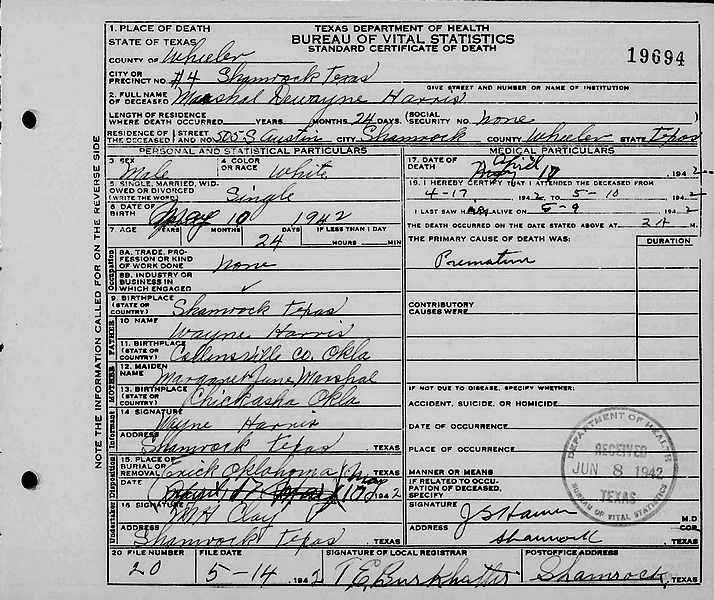 TEXAS DEPARTMENT OF HEALTH
BUREAU OF VITAL STATISTICS
STANDARD CERTIFICATE OF DEATH
19694
1. PLACE OF DEATH
STATE OF TEXAS
COUNTY OF Wheeler
CITY OR PRECINCT NO. #4 Shamrock Texas
GIVE STREET AND NUMBER OR NAME OF INSTITUTION
2. FULL NAME OF DECEASED Marshal Dewayne Harris
LENGTH OF RESIDENCE WHERE DEATH OCCURRED YEARS MONTHS 24 DAYS (SOCIAL SECURITY NO. none )
RESIDENCE OF THE DECEASED STREET AND NO. 505 S. Austin CITY Shamrock COUNTY Wheeler STATE Texas
NOTE THE INFORMATION CALLED FOR ON THE REVERSE SIDE
PERSONAL AND STATISTICAL PARTICULARS
3 SEX Male
4 COLOR OR RACE White
5 SINGLE, MARRIED, WIDOWED OR DIVORCED (WRITE THE WORD) Single
6 DATE OF BIRTH 10 1942
7 AGE YEARS MONTHS 24 DAYS IF LESS THAN 1 DAY HOURS MIN
Occupation
8A. TRADE, PROFESSION OR KIND OF WORK DONE none
8B. INDUSTRY OR BUSINESS IN WHICH ENGAGED ✓
9. BIRTHPLACE (STATE OR COUNTRY) Shamrock Texas
FATHER
10 NAME Wayne Harris
11. BIRTHPLACE (STATE OR COUNTRY) Collinsville Co. Okla
MOTHER
12. MAIDEN NAME Margaret June Marshal
13. BIRTHPLACE (STATE OR COUNTRY) Chickasha Okla
Informant
14 SIGNATURE Wayne Harris
ADDRESS Shamrock Texas, TEXAS
Disposition
15. PLACE OF BURIAL OR REMOVAL Erick Oklahoma, TEXAS
DATE May 10 1942
Undertaker
16 SIGNATURE Clay
ADDRESS Shamrock Texas, TEXAS
MEDICAL PARTICULARS
17. DATE OF DEATH April 1942
18. I HEREBY CERTIFY THAT I ATTENDED THE DECEASED FROM
4-17, 1942, TO 5-10, 1942
I LAST SAW him ALIVE ON 5-9 1942
THE DEATH OCCURRED ON THE DATE STATED ABOVE AT 2A M.
THE PRIMARY CAUSE OF DEATH WAS:
DURATION
Premature
CONTRIBUTORY CAUSES WERE:
IF NOT DUE TO DISEASE, SPECIFY WHETHER:
ACCIDENT, SUICIDE, OR HOMICIDE
DATE OF OCCURRENCE
PLACE OF OCCURRENCE
MANNER OR MEANS
IF RELATED TO OCCUPATION OF DECEASED, SPECIFY
SIGNATURE M.D.
COR.
ADDRESS Shamrock, TEXAS
DEPARTMENT OF HEALTH
RECEIVED
JUN 8 1942
TEXAS
BUREAU OF VITAL STATISTICS
20 FILE NUMBER 20
FILE DATE 5-14, 1942
SIGNATURE OF LOCAL REGISTRAR T. E. Burkhalter
POSTOFFICE ADDRESS Shamrock, TEXAS